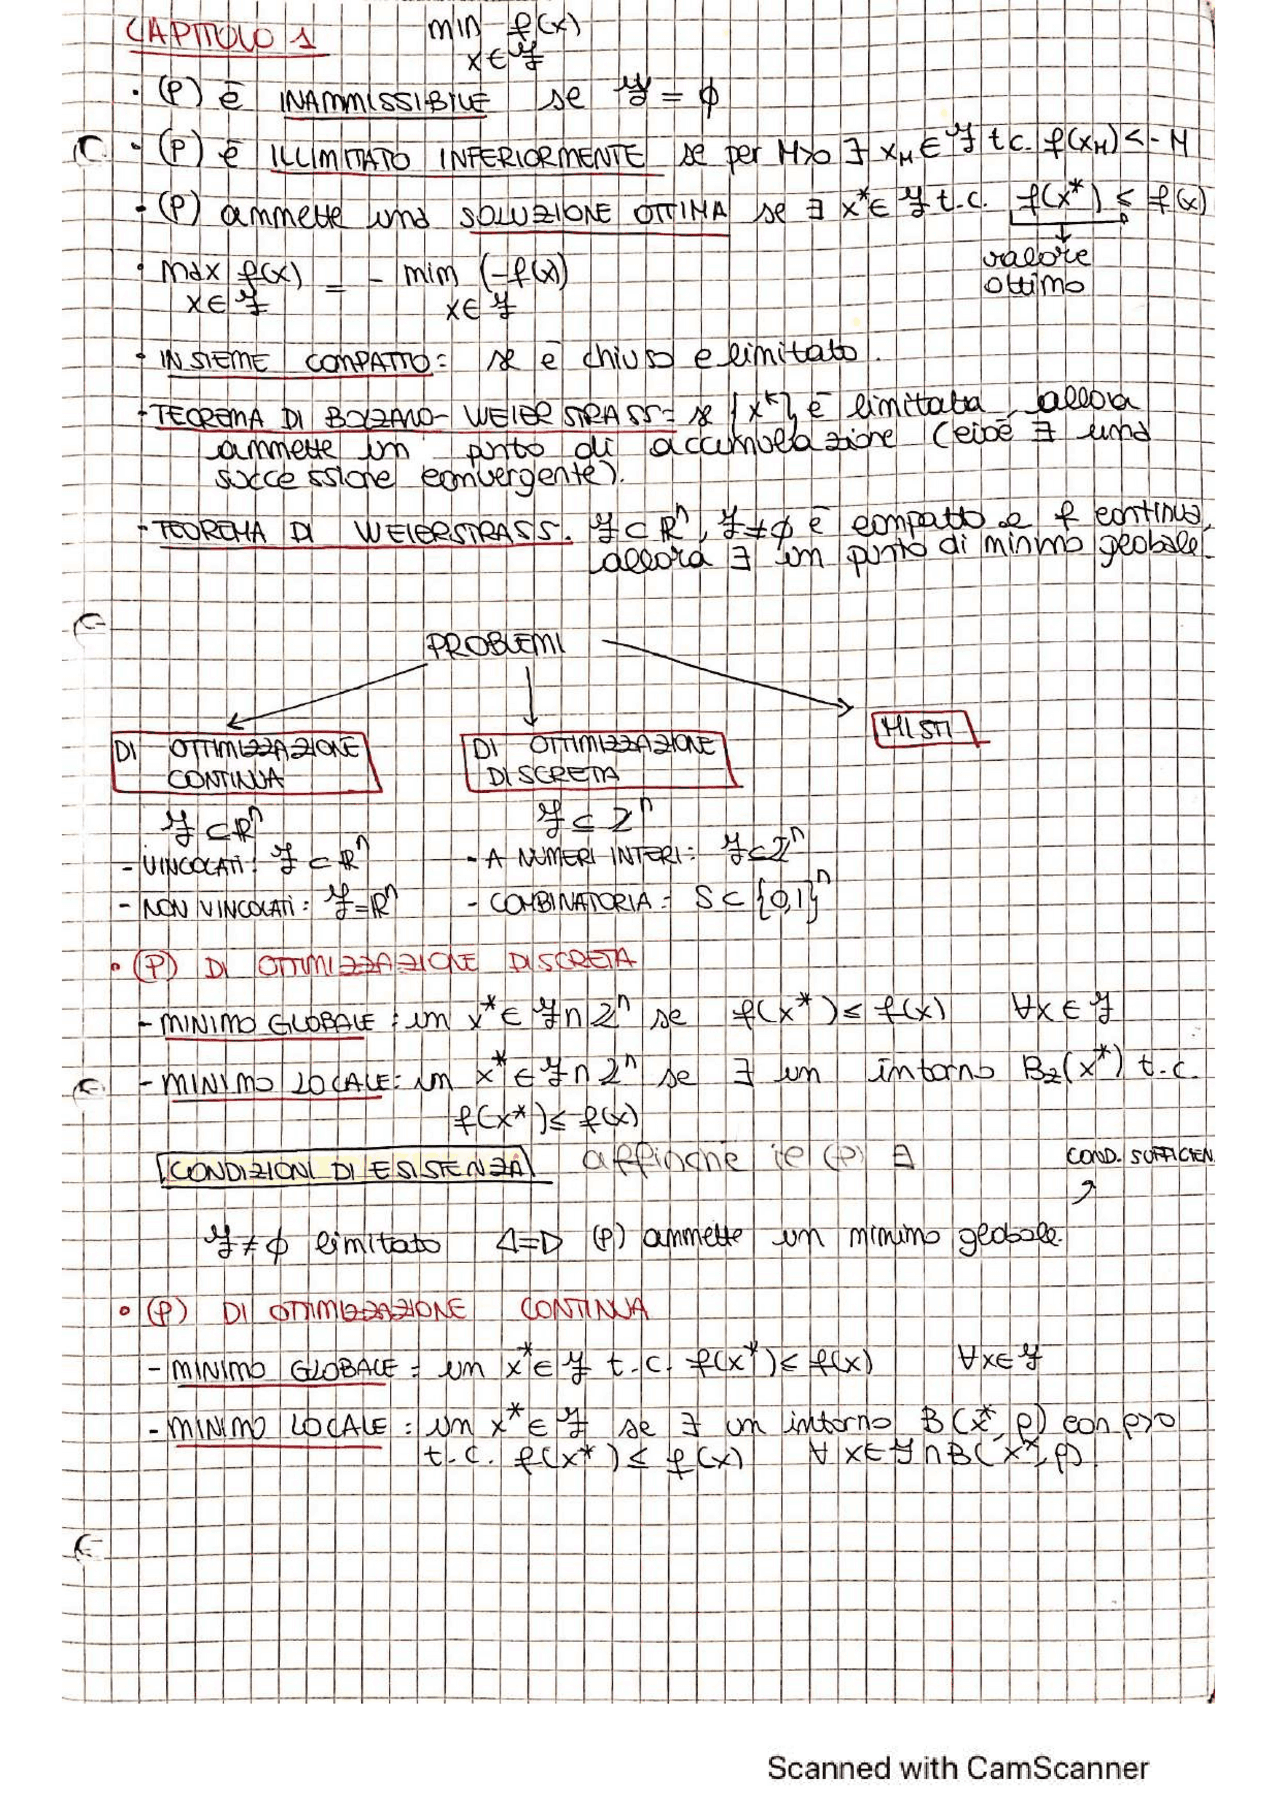 CAPITOLO 1 min f(x)
x∈ℱ
· (P) è INAMMISSIBILE se ℱ = ϕ
· (P) è ILLIMITATO INFERIORMENTE se per M>0 ∃ x_M ∈ ℱ t.c. f(x_M) < - M
· (P) ammette una SOLUZIONE OTTIMA se ∃ x* ∈ ℱ t.c. f(x*) ≤ f(x)
valore
ottimo
· max f(x) = - min (-f(x))
x∈ℱ x∈ℱ
· INSIEME COMPATTO: se è chiuso e limitato.
- TEOREMA DI BOLZANO-WEIERSTRASS: se {x^k} è limitata, allora
ammette un pnto di accumulazione (cioè ∃ una
successione convergente).
- TEOREMA DI WEIERSTRASS. ℱ ⊂ ℝ^n, ℱ ≠ ϕ è compatto e f continua,
allora ∃ un punto di minimo globale.
PROBLEMI
DI OTTIMIZZAZIONE
CONTINUA
DI OTTIMIZZAZIONE
DISCRETA
MISTI
ℱ ⊂ ℝ^n ℱ ⊆ ℤ^n
- VINCOLATI: ℱ ⊂ ℝ^n - A NUMERI INTERI: ℱ ⊂ ℤ^n
- NON VINCOLATI: ℱ = ℝ^n - COMBINATORIA: S ⊂ {0,1}^n
• (P) DI OTTIMIZZAZIONE DISCRETA
- MINIMO GLOBALE: un x* ∈ ℱ ∩ ℤ^n se f(x*) ≤ f(x) ∀x ∈ ℱ
- MINIMO LOCALE: un x* ∈ ℱ ∩ ℤ^n se ∃ un intorno B_z(x*) t.c.
f(x*) ≤ f(x)
CONDIZIONI DI ESISTENZA affinché il (P) ∃ COND. SUFFICIEN
ℱ ≠ ϕ limitato ⇔ (P) ammette un minimo globale.
• (P) DI OTTIMIZZAZIONE CONTINUA
- MINIMO GLOBALE: un x* ∈ ℱ t.c. f(x*) ≤ f(x) ∀x∈ℱ
- MINIMO LOCALE: un x* ∈ ℱ se ∃ un intorno B(x*, ρ) con ρ>0
t.c. f(x*) ≤ f(x) ∀ x∈ℱ∩B(x*, ρ).
Scanned with CamScanner